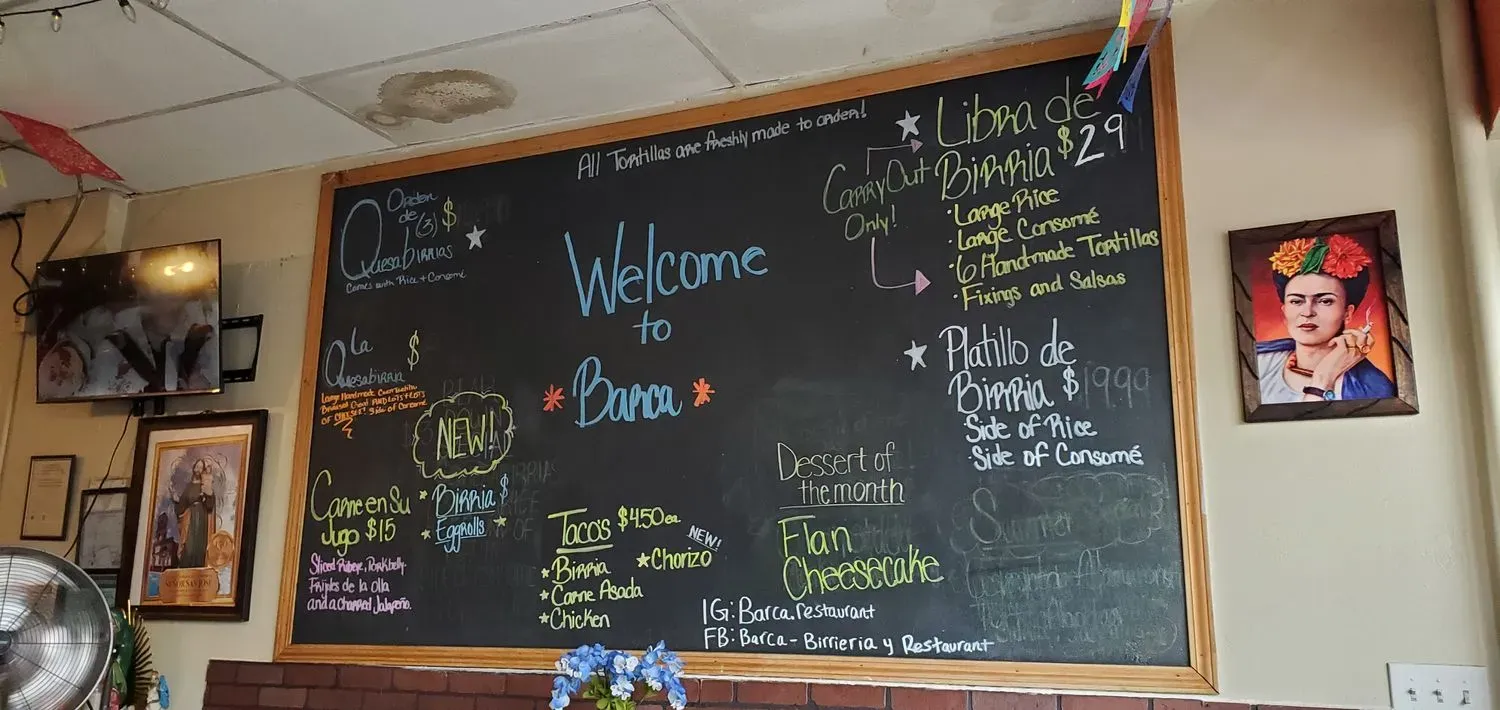 All Tortillas are freshly made to order!
Orden
de
(3) $
Quesabirrias
Comes with Rice + Consomé
La
Quesabirria $
Large Handmade Corn Tortilla
of CHEESE! Side of Consome
NEW!
Birria $
Eggrolls
Carne en Su
Jugo $15
Sliced Ribeye, Porkbelly,
Frijoles de la olla
and a charred Jalapeño.
Welcome
to
Barca
Taco's $4.50 ea
Birria
Carne Asada
Chicken
NEW!
Chorizo
Carry Out
Only!
Libra de
Birria $29
· Large Rice
· Large Consomé
· 6 Handmade Tortillas
· Fixings and Salsas
Platillo de
Birria $19.99
Side of Rice
· Side of Consomé
Dessert of
the month
Flan
Cheesecake
Summer
IG: Barca.restaurant
FB: Barca - Birrieria y Restaurant
SEÑOR SAN JOSE